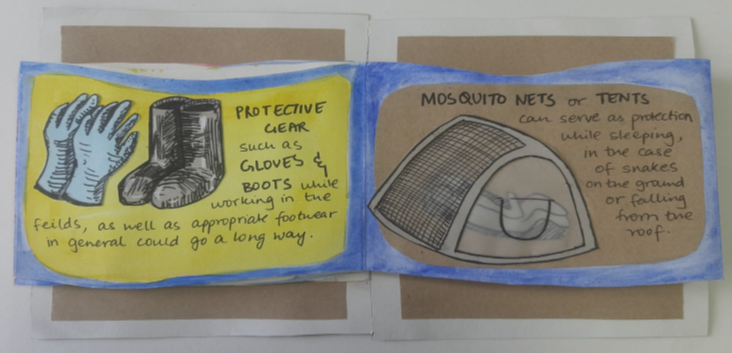 PROTECTIVE
GEAR
such as
GLOVES &
BOOTS while
working in the
feilds, as well as appropriate footwear
in general could go a long way.
MOSQUITO NETS or TENTS
can serve as protection
while sleeping,
in the case
of snakes
on the ground
or falling
from the
roof.